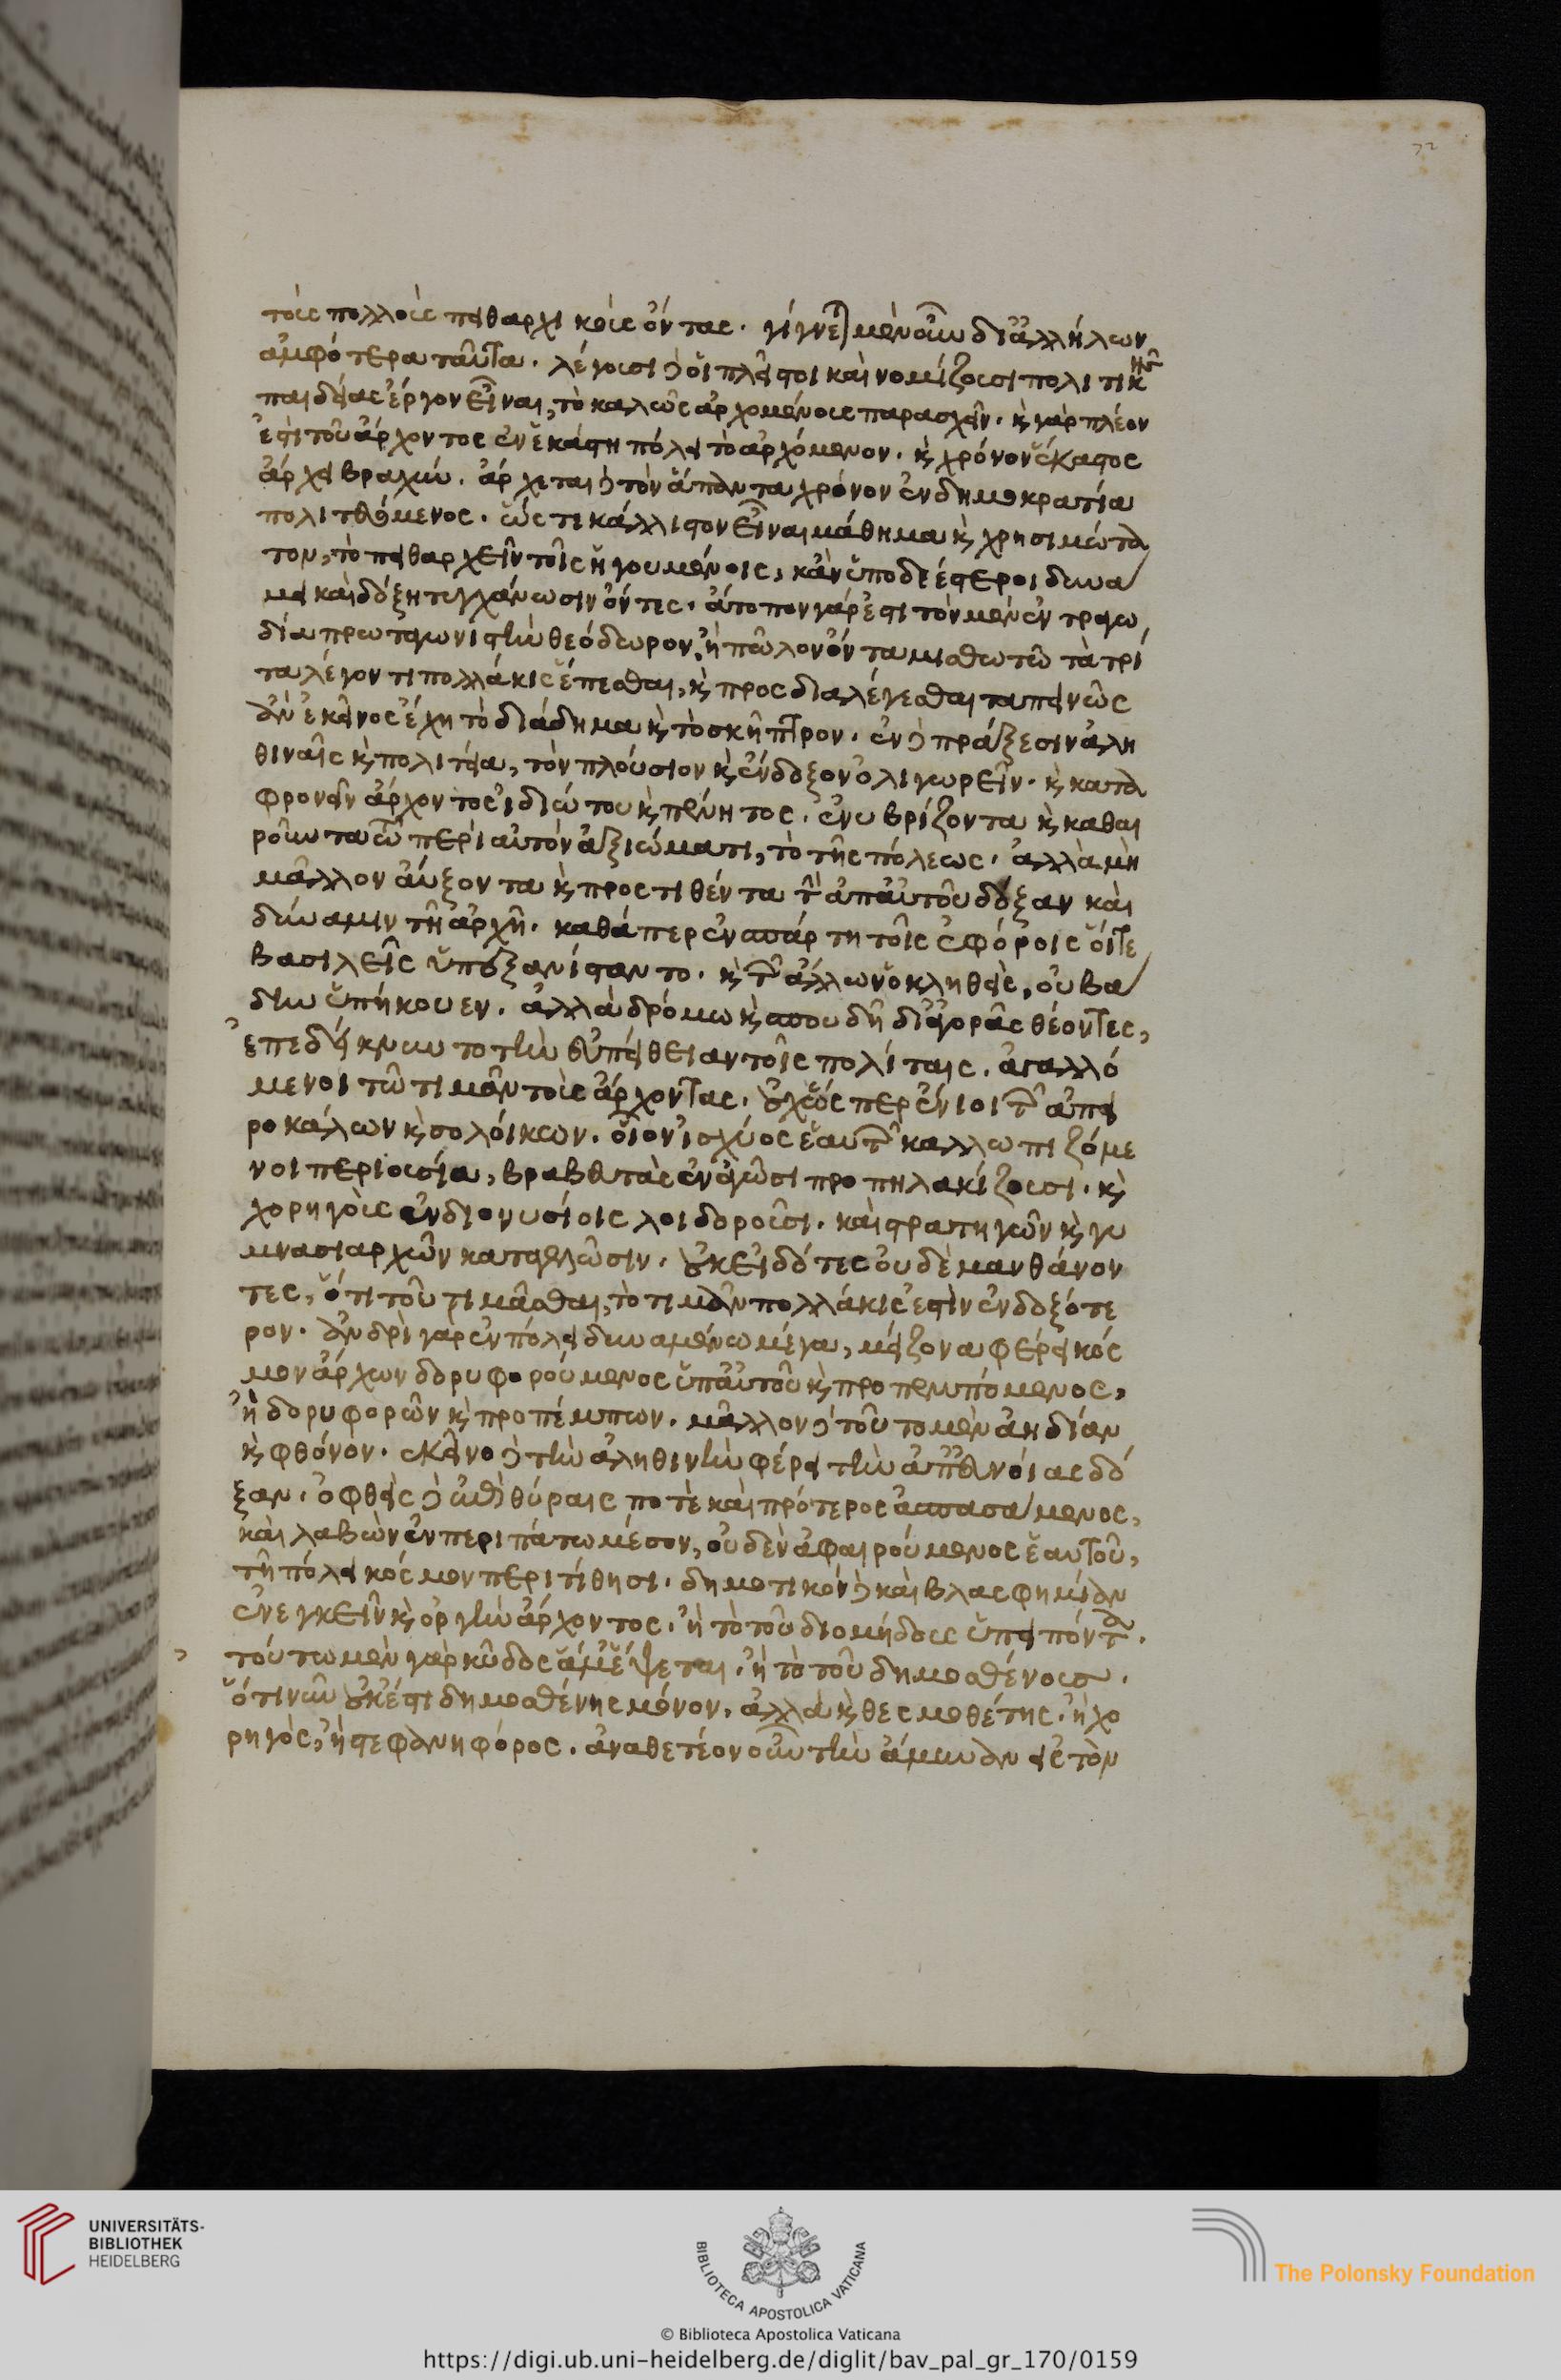 72
τοὺς πολλοὺς πειθαρχικοὺς ὄντας. γίγνεται μὲν οὖν δι' ἀλλήλων
ἀμφότερα ταῦτα. λέγουσι δὲ οἱ πλεῖστοι καὶ νομίζουσι πολιτικῆς
παιδείας ἔργον εἶναι, τὸ καλῶς ἀρχομένους παρασχεῖν. καὶ γὰρ πλέον
ἐστὶ τοῦ ἄρχοντος ἐν ἑκάστη πόλει τὸ ἀρχόμενον. καὶ χρόνον ἕκαστος
ἄρχει βραχύν. ἄρχεται δὲ τὸν ἅπαντα χρόνον ἐν δημοκρατία
πολιτευόμενος. ὥς τε κάλλιστον εἶναι μάθημα καὶ χρησιμώτα
τον, τὸ πειθαρχεῖν τοῖς ἡγουμένοις, κἂν ὑποδεέστεροι δυνά
μει καὶ δόξη τυγχάνωσιν ὄντες. ἄτοπον γάρ ἐστι τὸν μὲν ἐν τραγω
δία πρωταγωνιστὴν θεόδωρον, ἢ πῶλον ὄντα μισθωτῶ τὰ τρί
τα λέγοντι πολλάκις ἕπεσθαι, καὶ προς διαλέγεσθαι ταπεινῶς
ἂν ἐκεῖνος ἔχη τὸ διάδημα καὶ τὸ σκῆπτρον. ἐν δὲ πράξεσιν ἀλη
θιναῖς καὶ πολιτεία, τὸν πλούσιον καὶ ἔνδοξον ὀλιγωρεῖν. καὶ κατα
φρονεῖν ἄρχοντος ἰδιώτου καὶ πένητος. ἐνυβρίζοντα καὶ καθαι
ροῦντα τῶ περὶ αὐτὸν ἀξιώματι, τὸ τῆς πόλεως. ἀλλὰ μὴ
μᾶλλον αὔξοντα καὶ προς τιθέντα τὴν ἀπ' αὐτοῦ δόξαν καὶ
δύναμιν τῆ ἀρχῆ. καθάπερ ἐν σπάρτη τοῖς ἐφόροις οἵτε
βασιλεῖς ὑπεξανίσταντο. καὶ τῶν ἄλλων ὁ κληθεὶς, οὐ βά
δην ὑπήκουεν. ἀλλὰ δρόμω καὶ σπουδῆ δι' ἀγορᾶς θέοντες,
ἐπεδείκνυντο τὴν εὐπείθειαν τοῖς πολίταις. ἀγαλλό
μενοι τῶ τιμᾶν τοὺς ἄρχοντας. οὐχ ὥς περ ἔνιοι τῶν ἀπει
ροκάλων καὶ σολοίκων. οἷον ἰσχύος ἑαυτῶν καλλωπιζόμε
νοι περιουσία, βραβευτὰς ἐν ἀγῶσι προπηλακίζουσι. καὶ
χορηγοὺς ἐν διονυσίοις λοιδοροῦσι. καὶ στρατηγῶν καὶ γυ
μνασιαρχῶν καταγελῶσιν. οὐκ εἰδότες οὐδὲ μανθάνον
τες, ὅτι τοῦ τιμᾶσθαι, τὸ τιμᾶν πολλάκις ἐστὶν ἐνδοξότε
ρον. ἀνδρὶ γὰρ ἐν πόλει δυναμένω μέγα, μείζονα φέρει κός
μον ἄρχων δορυφορούμενος ὑπ' αὐτοῦ καὶ προπεμπόμενος,
ἢ δορυφορῶν καὶ προπέμπων. μᾶλλον δὲ τοῦτο μὲν ἀηδίαν
καὶ φθόνον. ἐκεῖνο δὲ τὴν ἀληθινὴν φέρει τὴν ἀπ' εὐνοίας δό
ξαν. ὀφθεὶς δὲ ἐπὶ θύραις ποτὲ καὶ πρότερος ἀσπασάμενος,
καὶ λαβὼν ἐν περιπάτω μέσον, οὐδὲν ἀφαιρούμενος ἑαυτοῦ,
τῆ πόλει κόσμον περιτίθησι. δημοτικὸν δὲ καὶ βλασφημίαν
ἐνεγκεῖν καὶ ὀργὴν ἄρχοντος. ἢ τὸ τοῦ διομήδους ὑπειπόντα.
τούτω μὲν γὰρ κῦδος ἅμ' ἕψεται. ἢ τὸ τοῦ δημοσθένους.
ὅτι νῦν οὐκ ἔστι δημοσθένης μόνον. ἀλλὰ καὶ θεσμοθέτης. ἢ χο
ρηγὸς, ἢ στεφανηφόρος. ἀναθετέον οὖν τὴν ἄμυναν εἰς τὸν
UNIVERSITÄTS-
BIBLIOTHEK
HEIDELBERG
BIBLIOTECA APOSTOLICA VATICANA
© Biblioteca Apostolica Vaticana
The Polonsky Foundation
https://digi.ub.uni-heidelberg.de/diglit/bav_pal_gr_170/0159